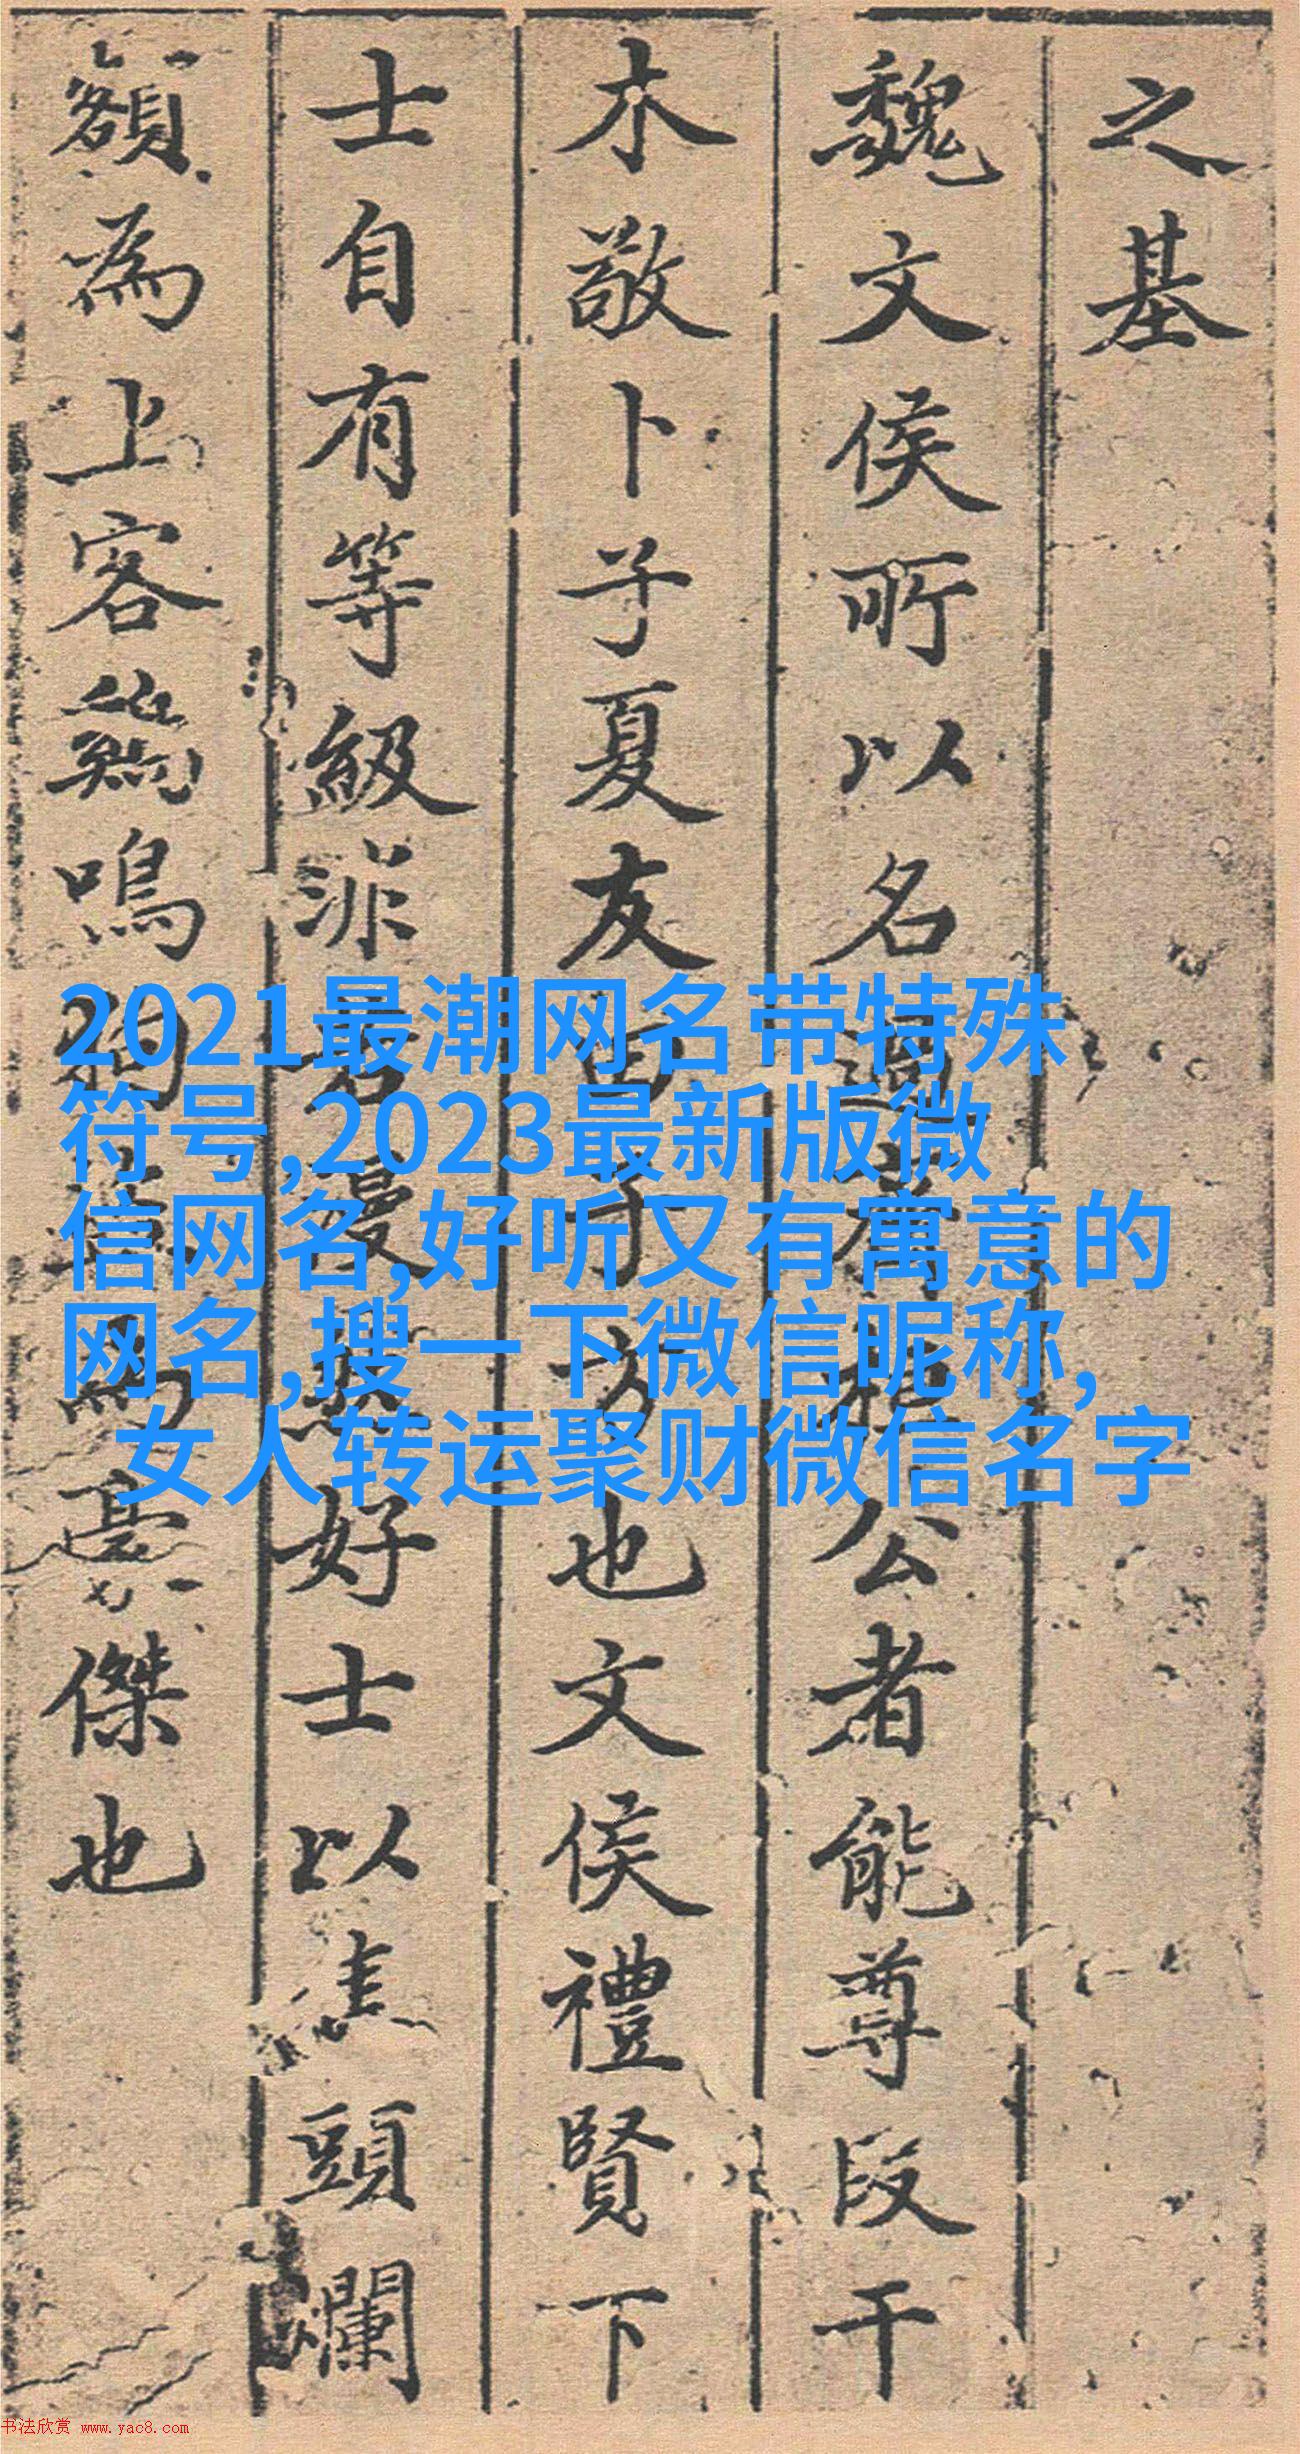 之基
魏文侯所以名過齊桓公者能尊段干
木敬卜子夏友田子方也文侯禮賢下
士自有等級若漫然好士以焦頭爛
額為上客鷄鳴狗盜為豪傑也
2021最潮网名带特殊
符号,2023最新版微
信网名,好听又有寓意的
网名,搜一下微信昵称,
女人转运聚财微信名字
书法欣赏 www.yac8.com